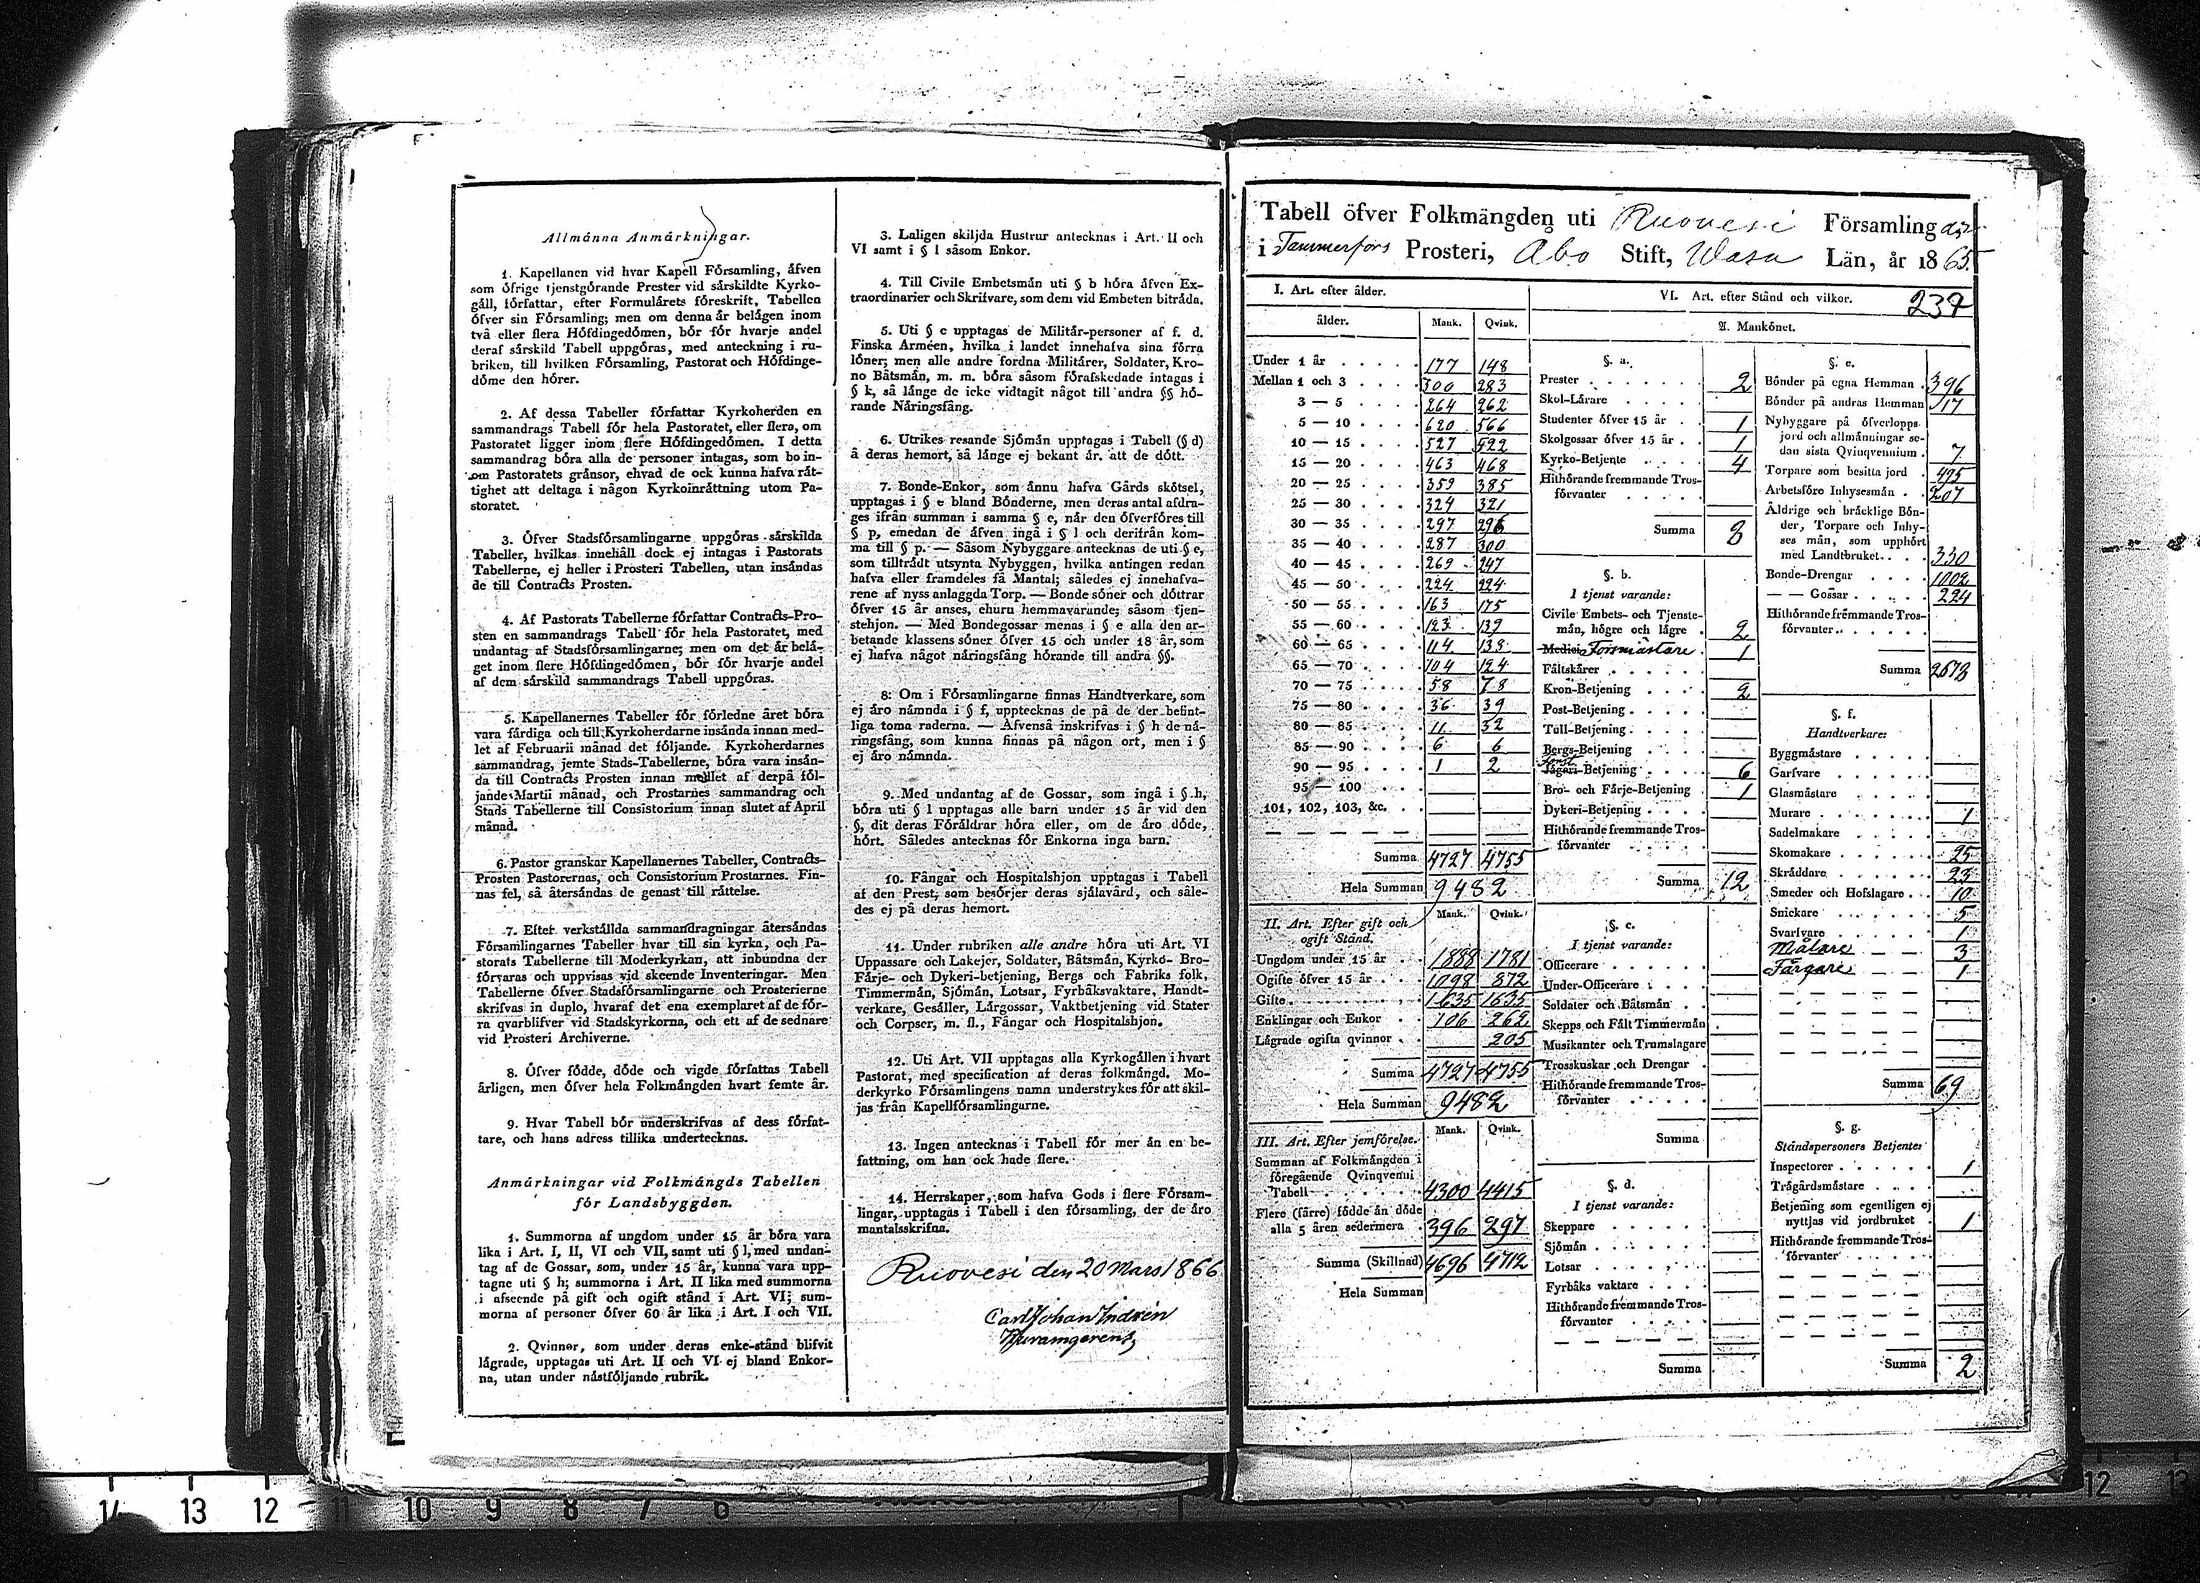 Allmänna Anmärkningar.
1. Kapellanen vid hvar Kapell Församling, äfven
som öfrige tjenstgörande Prester vid särskildte Kyrko-
gäll, författar, efter Formulärets föreskrift, Tabellen
öfver sin Församling; men om denna är belägen inom
två eller flera Höfdingedömen, bör för hvarje andel
deraf särskild Tabell uppgöras, med anteckning i ru-
briken, till hvilken Församling, Pastorat och Höfdinge-
döme den hörer.
2. Af dessa Tabeller författar Kyrkoherden en
sammandrags Tabell för hela Pastoratet, eller flera, om
Pastoratet ligger inom flere Höfdingedömen. I detta
sammandrag böra alla de personer intagas, som bo in-
om Pastoratets gränsor, ehvad de ock kunna hafva rät-
tighet att deltaga i någon Kyrkoinrättning utom Pa-
storatet.
3. Öfver Stadsförsamlingarne uppgöras särskilda
Tabeller, hvilkas innehåll dock ej intages i Pastorats
Tabellerne, ej heller i Prosteri Tabellen, utan insändas
de till Contracts Prosten.
4. Af Pastorats Tabellerne författar Contracts-Pro-
sten en sammandrags Tabell för hela Pastoratet, med
undantag af Stadsförsamlingarne; men om det är belä-
get inom flere Höfdingedömen, bör för hvarje andel
af dem särskild sammandrags Tabell uppgöras.
5. Kapellanernes Tabeller för förledne året böra
vara färdiga och till Kyrkoherdarne insända innan med-
let af Februarii månad det följande. Kyrkoherdarnes
sammandrag, jemte Stads-Tabellerne, böra vara insän-
da till Contracts Prosten innan medlet af derpå föl-
jande Martii månad, och Prostarnes sammandrag och
Stads Tabellerne till Consistorium innan slutet af April
månad.
6. Pastor granskar Kapellanernes Tabeller, Contracts-
Prosten Pastorernas, och Consistorium Prostarnes. Fin-
nas fel, så återsändas de genast till rättelse.
7. Efter verkställda sammandragningar återsändas
Församlingarnes Tabeller hvar till sin kyrka, och Pa-
storats Tabellerne till Moderkyrkan, att inbundna der
förvaras och uppvisas vid skeende Inventeringar. Men
Tabellerne öfver Stadsförsamlingarne och Prosterierne
skrifvas in duplo, hvaraf det ena exemplaret af de för-
ra qvarblifver vid Stadskyrkorna, och ett af de sednare
vid Prosteri Archiverne.
8. Öfver födde, döde och vigde författas Tabell
årligen, men öfver hela Folkmängden hvart femte år.
9. Hvar Tabell bör underskrifvas af dess förfat-
tare, och hans adress tillika undertecknas.
Anmärkningar vid Folkmängds Tabellen
för Landsbyggden.
1. Summorna af ungdom under 15 år böra vara
lika i Art. I, II, VI och VII, samt uti § l, med undan-
tag af de Gossar, som, under 15 år, kunna vara upp-
tagne uti § h; summorna i Art. II lika med summorna
i afseende på gift och ogift stånd i Art. VI; sum-
morna af personer öfver 60 år lika i Art. I och VII.
2. Qvinnor, som under deras enke-stånd blifvit
lägrade, upptagas uti Art. II och VI ej bland Enkor-
na, utan under nästföljande rubrik.
3. Laligen skiljda Hustrur antecknas i Art. II och
VI samt i § l såsom Enkor.
4. Till Civile Embetsmän uti § b höra äfven Ex-
traordinarier och Skrifvare, som dem vid Embeten biträda.
5. Uti § c upptagas de Militär-personer af f. d.
Finska Arméen, hvilka i landet innehafva sina förra
löner; men alle andre fordna Militärer, Soldater, Kro-
no Båtsmän, m. m. böra såsom förafskedade intagas i
§ k, så länge de icke vidtagit något till andra §§ hö-
rande Näringsfång.
6. Utrikes resande Sjömän upptagas i Tabell (§ d)
å deras hemort, så länge ej bekant är, att de dött.
7. Bonde-Enkor, som ännu hafva Gårds skötsel,
upptagas i § e bland Bönderne, men deras antal afdra-
ges ifrån summan i samma § e, når den öfverföres till
§ p, emedan de äfven ingå i § l och derifrån kom-
ma till § p. — Såsom Nybyggare antecknas de uti § e,
som tillträdt utsynta Nybyggen, hvilka antingen redan
hafva eller framdeles få Mantal; således ej innehafva-
rene af nyss anlaggda Torp. — Bonde söner och döttrar
öfver 15 år anses, ehuru hemmavarande; såsom tjen-
stehjon. — Med Bondegossar menas i § e alla den ar-
betande klassens söner öfver 15 och under 18 år, som
ej hafva något näringsfång hörande till andra §§.
8: Om i Församlingarne finnas Handtverkare, som
ej äro nämnda i § f, upptecknas de på de der befint-
liga toma raderna. — Äfvenså inskrifvas i § h de nä-
ringsfång, som kunna finnas på någon ort, men i §
ej äro nämnda.
9. Med undantag af de Gossar, som ingå i § h,
böra uti § l upptagas alle barn under 15 år vid den
§, dit deras Föräldrar höra eller, om de äro döde,
hört. Således antecknas för Enkorna inga barn.
10. Fångar och Hospitalshjon upptagas i Tabell
af den Prest, som besörjer deras själavård, och såle-
des ej på deras hemort.
11. Under rubriken alle andre höra uti Art. VI
Uppassare och Lakejer, Soldater, Båtsmän, Kyrko- Bro-
Färje- och Dykeri-betjening, Bergs och Fabriks folk,
Timmermän, Sjömän, Lotsar, Fyrbåksvaktare, Handt-
verkare, Gesäller, Lärgossar, Vaktbetjening vid Stater
och Corpser, m. fl., Fångar och Hospitalshjon.
12. Uti Art. VII upptagas alla Kyrkogällen i hvart
Pastorat, med specification af deras folkmängd. Mo-
derkyrko Församlingens namn understrykes för att skil-
jas från Kapellförsamlingarne.
13. Ingen antecknas i Tabell för mer än en be-
fattning, om han ock hade flere.
14. Herrskaper, som hafva Gods i flere Försam-
lingar, upptagas i Tabell i den församling, der de äro
mantalsskrifna.
Ruovesi den 20 Mars 1866
Carl Johan Indrén
Tabell öfver Folkmängden uti Ruovesi Församling
i Tammerfors Prosteri, Åbo Stift, Wasa Län, år 1865.
237
I. Art. efter ålder.
ålder. Mank. Qvink.
Under 1 år 177 148
Mellan 1 och 3 300 283
3 — 5 264 262
5 — 10 620 566
10 — 15 527 522
15 — 20 463 468
20 — 25 359 385
25 — 30 324 321
30 — 35 297 296
35 — 40 287 300
40 — 45 269 247
45 — 50 224 224
50 — 55 163 175
55 — 60 123 139
60 — 65 114 138
65 — 70 104 124
70 — 75 58 78
75 — 80 36 39
80 — 85 11 32
85 — 90 6 6
90 — 95 1 2
95 — 100
101, 102, 103, &c.
Summa 4727 4755
Hela Summan 9482
II. Art. Efter gift och ogift Stånd. Mank. Qvink.
Ungdom under 15 år 1888 1781
Ogifte öfver 15 år 1098 872
Gifte 1635 1635
Enklingar och Enkor 106 262
Lägrade ogifta qvinnor 205
Summa 4727 4755
Hela Summan 9482
III. Art. Efter jemförelse. Mank. Qvink.
Summan af Folkmängden i
föregående Qvinqvenni
Tabell 4300 4415
Flere (färre) födde än döde
alla 5 åren sedermera 396 297
Summa (Skillnad) 4696 4712
Hela Summan
VI. Art. efter Stånd och vilkor.
A. Mankönet.
§. a.
Prester 2
Skol-Lärare
Studenter öfver 15 år 1
Skolgossar öfver 15 år 1
Kyrko-Betjente 4
Hithörande fremmande Tros-
förvanter
Summa 8
§. b.
I tjenst varande:
Civile Embets- och Tjenste-
män, högre och lägre 2
Medici Forsmästare 1
Fältskärer
Kron-Betjening 2
Post-Betjening
Tull-Betjening
Bergs-Betjening
Forst
Jägeri-Betjening 6
Bro- och Färje-Betjening 1
Dykeri-Betjening
Hithörande fremmande Tros-
förvanter
Summa 12
§. c.
I tjenst varande:
Officerare
Under-Officerare
Soldater och Båtsmän
Skepps och Fält Timmermän
Musikanter och Trumslagare
Trosskuskar och Drengar
Hithörande fremmande Tros-
förvanter
Summa
§. d.
I tjenst varande:
Skeppare
Sjömän
Lotsar
Fyrbåks vaktare
Hithörande fremmande Tros-
förvanter
Summa
§. e.
Bönder på egna Hemman 396
Bönder på andras Hemman 17
Nybyggare på öfverlopps
jord och allmänningar se-
dan sista Qvinqvennium 7
Torpare som besitta jord 495
Arbetsföre Inhysesmän 207
Äldrige och bräcklige Bön-
der, Torpare och Inhy-
ses män, som upphört
med Landtbruket 330
Bonde-Drengar 1002
— — Gossar 224
Hithörande fremmande Tros-
förvanter
Summa 2678
§. f.
Handtverkare:
Byggmästare
Garfvare
Glasmästare
Murare 1
Sadelmakare
Skomakare 25
Skräddare 23
Smeder och Hofslagare 10
Snickare 5
Svarfvare 1
Målare 3
Färgare 1
Summa 69
§. g.
Ståndspersoners Betjente:
Inspectorer 1
Trägårdsmästare
Betjening som egentligen ej
nyttjas vid jordbruket 1
Hithörande fremmande Tros-
förvanter
Summa 2
14 13 12 11 10 9 8 7 6
12 13